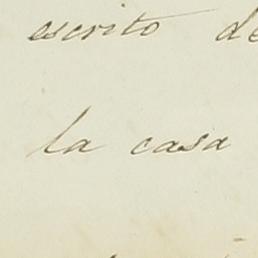 escrito de
la casa